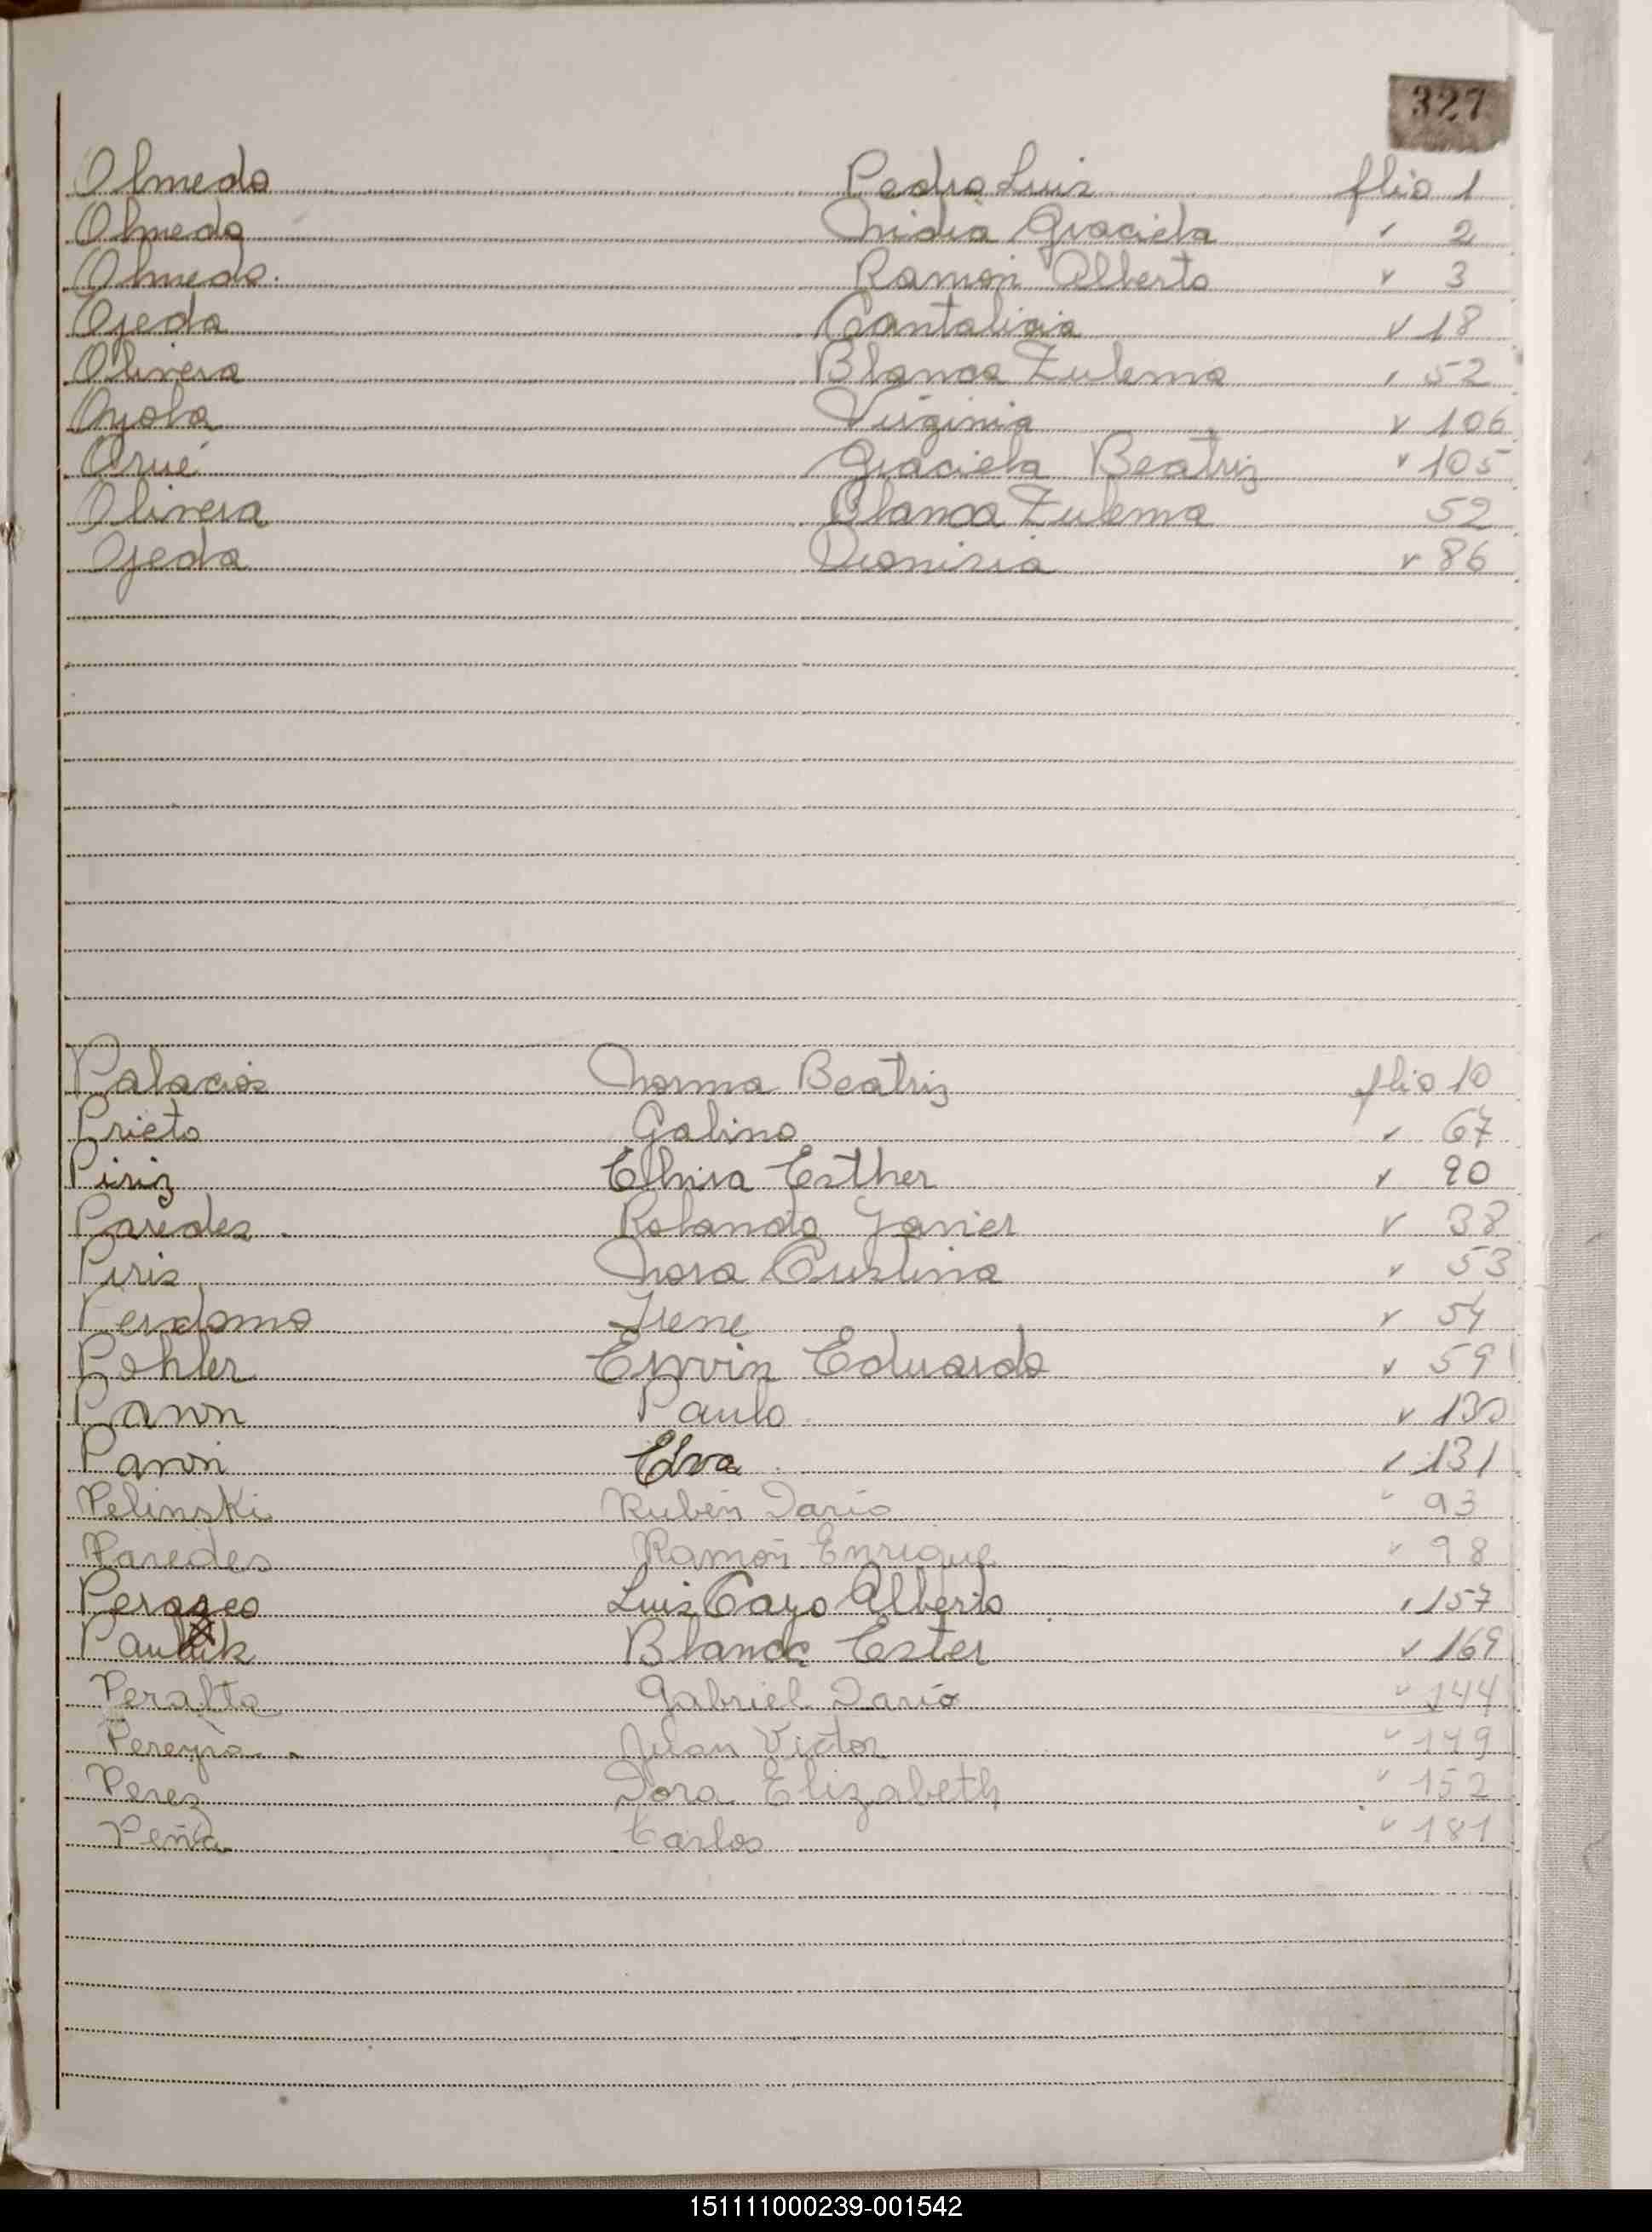 327
Olmedo Pedro Luis flio 1
Olmedo Nidia Graciela " 2
Olmedo. Ramón Alberto " 3
Ojeda Cantalicia " 18
Olivera Blanca Zulema " 52
Oyola Virginia " 106
Orué Graciela Beatriz " 105
Olivera Blanca Zulema 52
Ojeda Dionisia " 86
Palacios Norma Beatriz flio 10
Prieto Galino " 67
Piriz Elvira Esther " 90
Paredes. Rolando Javier " 38
Piris Nora Cristina " 53
Perdomo Irene " 54
Pohler Erwin Eduardo " 59
Pavon Paulo " 130
Pavon Elva " 131
Pelinski Rubén Darío " 93
Paredes Ramón Enrique " 98
Perazeo Luis Cayo Alberto " 157
Blanca Ester " 169
Peralta Gabriel Darío " 144
Pereyra Juan Victor " 149
Perez Dora Elizabeth " 152
Peña Carlos " 181
151111000239-001542